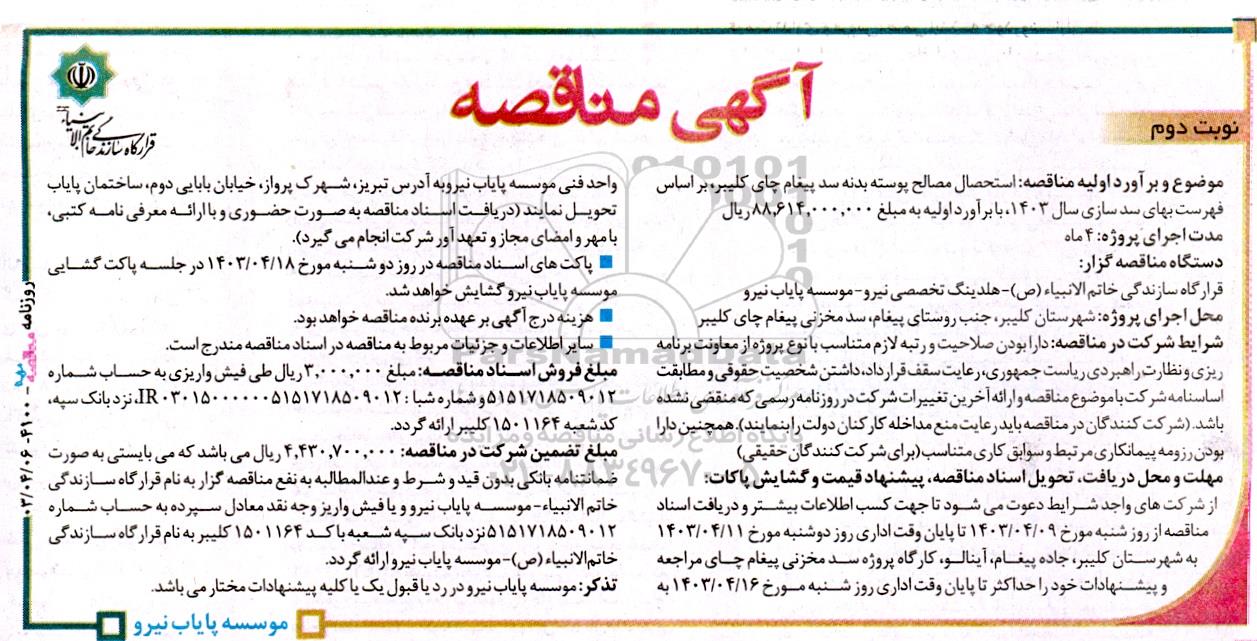 آگهی مناقصه
نوبت دوم
قرارگاه سازندگی خاتم الانبیاء
موضوع و برآورد اولیه مناقصه: استحصال مصالح پوسته بدنه سد پیغام چای کلیبر، بر اساس
فهرست بهای سد سازی سال ۱۴۰۳، با برآورد اولیه به مبلغ ۸۸,۶۱۴,۰۰۰,۰۰۰ ریال
مدت اجرای پروژه: ۴ ماه
دستگاه مناقصه گزار:
قرارگاه سازندگی خاتم الانبیاء (ص)-هلدینگ تخصصی نیرو-موسسه پایاب نیرو
محل اجرای پروژه: شهرستان کلیبر، جنب روستای پیغام، سد مخزنی پیغام چای کلیبر
شرایط شرکت در مناقصه: دارا بودن صلاحیت و رتبه لازم متناسب با نوع پروژه از معاونت برنامه
ریزی و نظارت راهبردی ریاست جمهوری، رعایت سقف قرارداد، داشتن شخصیت حقوقی و مطابقت
اساسنامه شرکت با موضوع مناقصه و ارائه آخرین تغییرات شرکت در روزنامه رسمی که منقضی نشده
باشد. (شرکت کنندگان در مناقصه باید رعایت منع مداخله کارکنان دولت را بنمایند). همچنین دارا
بودن رزومه پیمانکاری مرتبط و سوابق کاری متناسب (برای شرکت کنندگان حقیقی)
مهلت و محل دریافت، تحویل اسناد مناقصه، پیشنهاد قیمت و گشایش پاکات:
از شرکت های واجد شرایط دعوت می شود تا جهت کسب اطلاعات بیشتر و دریافت اسناد
مناقصه از روز شنبه مورخ ۱۴۰۳/۰۴/۰۹ تا پایان وقت اداری روز دوشنبه مورخ ۱۴۰۳/۰۴/۱۱
به شهرستان کلیبر، جاده پیغام، آینالو، کارگاه پروژه سد مخزنی پیغام چای مراجعه
و پیشنهادات خود را حداکثر تا پایان وقت اداری روز شنبه مورخ ۱۴۰۳/۰۴/۱۶ به
واحد فنی موسسه پایاب نیرو به آدرس تبریز، شهرک پرواز، خیابان بابایی دوم، ساختمان پایاب
تحویل نمایند (دریافت اسناد مناقصه به صورت حضوری و با ارائه معرفی نامه کتبی،
با مهر و امضای مجاز و تعهدآور شرکت انجام می گیرد).
■ پاکت های اسناد مناقصه در روز دو شنبه مورخ ۱۴۰۳/۰۴/۱۸ در جلسه پاکت گشایی
موسسه پایاب نیرو گشایش خواهد شد.
■ هزینه درج آگهی بر عهده برنده مناقصه خواهد بود.
■ سایر اطلاعات و جزئیات مربوط به مناقصه در اسناد مناقصه مندرج است.
مبلغ فروش اسناد مناقصه: مبلغ ۳,۰۰۰,۰۰۰ ریال طی فیش واریزی به حساب شماره
۵۱۵۱۷۱۸۵۰۹۰۱۲ و شماره شبا: IR۰۳۰۱۵۰۰۰۰۰۰۵۱۵۱۷۱۸۵۰۹۰۱۲، نزد بانک سپه،
کد شعبه ۱۵۰۱۱۶۴ کلیبر ارائه گردد.
مبلغ تضمین شرکت در مناقصه: ۴,۴۳۰,۷۰۰,۰۰۰ ریال می باشد که می بایستی به صورت
ضمانتنامه بانکی بدون قید و شرط و عندالمطالبه به نفع مناقصه گزار به نام قرارگاه سازندگی
خاتم الانبیاء-موسسه پایاب نیرو و یا فیش واریز وجه نقد معادل سپرده به حساب شماره
۵۱۵۱۷۱۸۵۰۹۰۱۲ نزد بانک سپه شعبه با کد ۱۵۰۱۱۶۴ کلیبر به نام قرارگاه سازندگی
خاتم الانبیاء (ص)-موسسه پایاب نیرو ارائه گردد.
تذکر: موسسه پایاب نیرو در رد یا قبول یک یا کلیه پیشنهادات مختار می باشد.
موسسه پایاب نیرو
روزنامه مناقصه ۴۱۰۰ - ۰۳/۰۴/۰۶
ParsNamadData
پایگاه اطلاع رسانی مناقصه و مزایده
۰۲۱-۸۸۳۴۹۶۷۰-۵